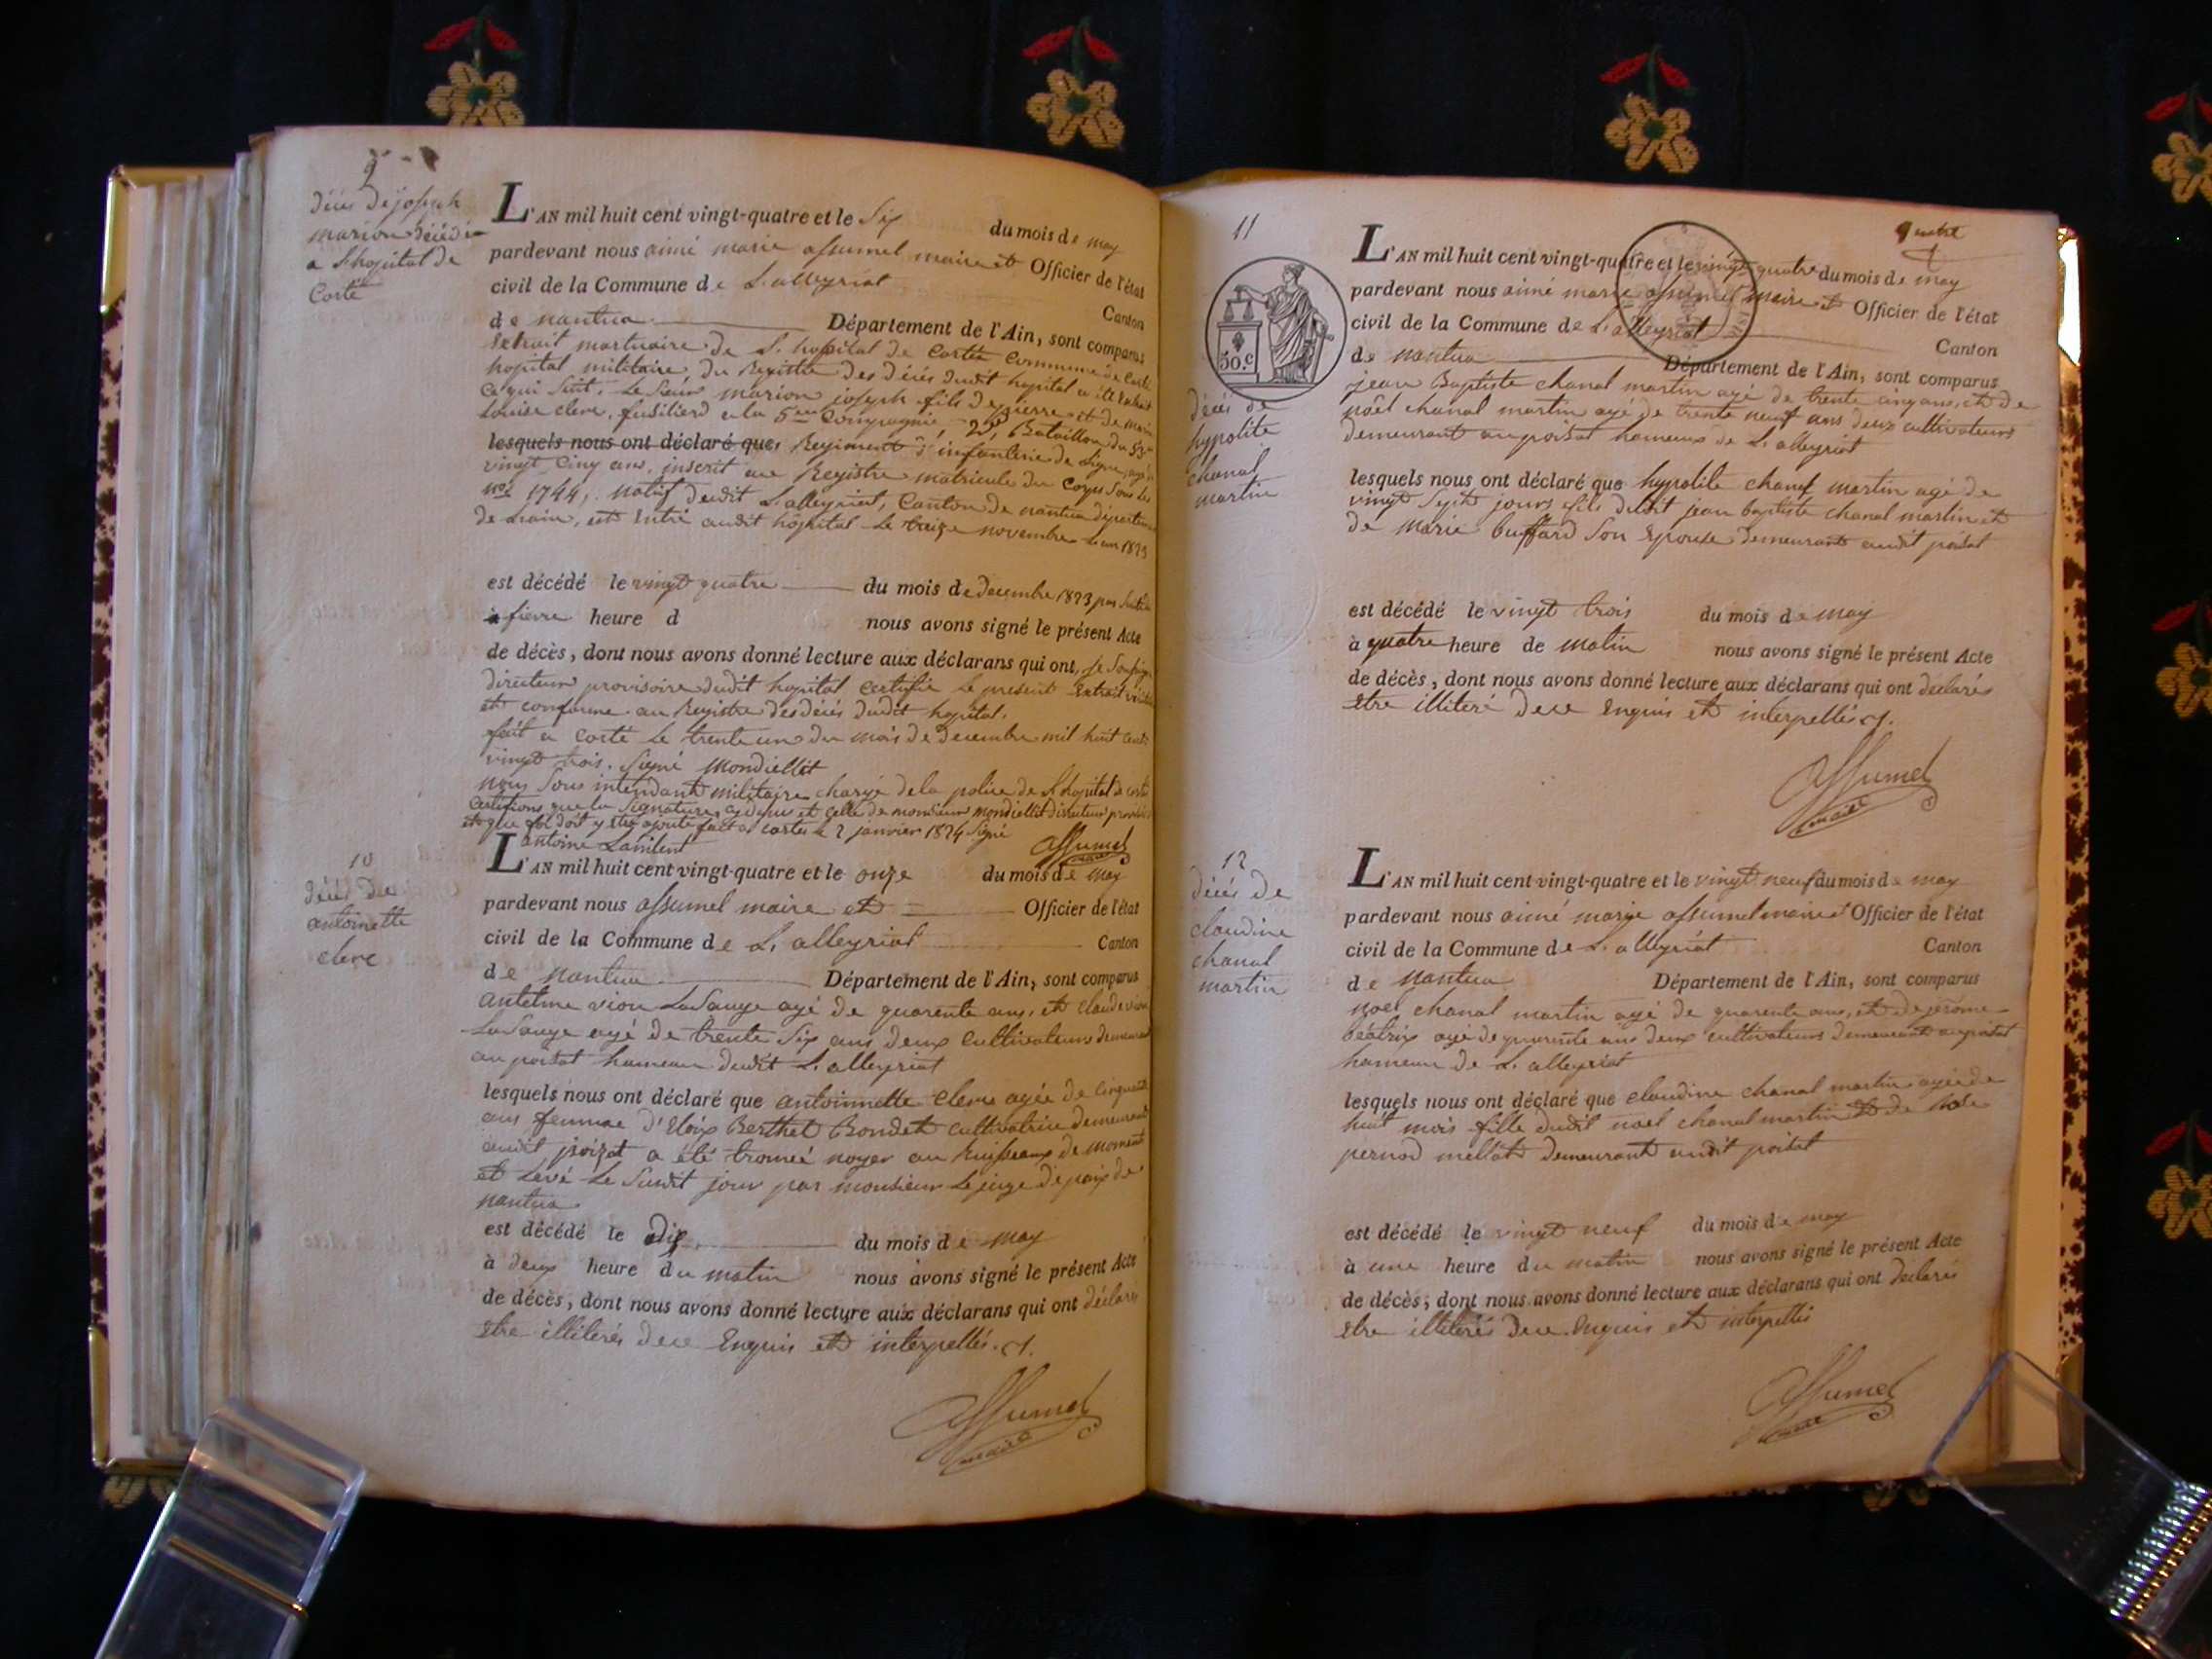 9
décés de joseph
marion décédé
a l'hopital de
Corté
L'AN mil huit cent vingt-quatre et le Six du mois de may
pardevant nous aimé marie assumel maire et Officier de l'état
civil de la Commune de L. alleyriat Canton
de nantua Département de l'Ain, sont comparus
Extrait mortuaire de L. hopital de Corté Commune de Corté
hopital militaire, du Registre des décés dudit hopital a été Extrait
Ce qui suit. Le Sieur marion joseph fils de pierre et de marie
Louise clerc, fusilier a la 5me Compagnie, 2e Bataillon du 53me
lesquels nous ont déclaré que Regiment d'infanterie de Ligne, agé de
vingt cinq ans, inscrit au Registre matricule du Corps sous les
nos 1744, natif dudit L. alleyriat, Canton de nantua département
de Lain, est Entré audit hopital Le treize novembre L'an 1823
est décédé le vingt quatre du mois de decembre 1823 par Suite de
à fievre heure d nous avons signé le présent Acte
de décès, dont nous avons donné lecture aux déclarans qui ont, je Soussigné
directeur provisoire dudit hopital certifie Le present Extrait véritable
et conforme au Registre des décés dudit hopital.
fait a Corté Le trente un du mois de decembre mil huit cent
vingt trois. Signé Mondiellit
nous Sous intendant militaire chargé de la police de L'hopital de Corté
Certifions que la Signature cydessus est Celle de monsieur mondiellit directeur provisoire
et que foi doit y etre ajoutée fait a Corté le 2 janvier 1824 Signé
antoine
Assumel
maire
10
décés de
antoinette
clerc
L'AN mil huit cent vingt-quatre et le onze du mois de may
pardevant nous assumel maire et Officier de l'état
civil de la Commune de L. alleyriat Canton
de nantua Département de l'Ain, sont comparus
antelme vion Lasauge agé de quarente ans, et claude vion
Lasauge agé de trente Six ans deux cultivateurs demeurant
au poisat hameau dudit L. alleyriat
lesquels nous ont déclaré que antoinnette clerc agée de Cinquante
ans femme d'Eloix Berthet Bondet cultivatrice demeurant
audit poizat a été trouvée noyer au Ruisseaux de
et Levé Le Susdit jour par monsieur Le juge de paix de
nantua
est décédé le dix du mois de may
à deux heure du matin nous avons signé le présent Acte
de décès, dont nous avons donné lecture aux déclarans qui ont déclarés
etre illiterés dece Enquis et interpellés.
Assumel
maire
11
quatre
50.c
décés de
hypolite
chanal
martin
L'AN mil huit cent vingt-quatre et le vingt quatre du mois de may
pardevant nous aimé marie assumel maire et Officier de l'état
civil de la Commune de L. alleyriat Canton
de nantua Département de l'Ain, sont comparus
jean Baptiste chanal martin agé de trente cinq ans, et de
noël chanal martin agé de trente neuf ans deux cultivateurs
demeurant au poisat hameaux de L. alleyriat
lesquels nous ont déclaré que hypolite chanal martin agé de
vingt Sept jours fils dudit jean baptiste chanal martin et
de Marie buffard Son Epouse demeurant audit poisat
est décédé le vingt trois du mois de may
à quatre heure de matin nous avons signé le présent Acte
de décès, dont nous avons donné lecture aux déclarans qui ont declarés
etre illiteré dece Enquis et interpellés.
Assumel
maire
12
décés de
claudine
chanal
martin
L'AN mil huit cent vingt-quatre et le vingt neuf du mois de may
pardevant nous aimé marie assumel maire et Officier de l'état
civil de la Commune de L. alleyriat Canton
de nantua Département de l'Ain, sont comparus
noel chanal martin agé de quarente ans, et de jerome
béatrix agé de quarente ans deux cultivateurs demeurant au poisat
hameau de L. alleyriat
lesquels nous ont déclaré que claudine chanal martin agée de
huit mois fille dudit noel chanal martin et de
pernod mellat demeurant audit poisat
est décédé le vingt neuf du mois de may
à une heure du matin nous avons signé le présent Acte
de décès; dont nous avons donné lecture aux déclarans qui ont déclarés
etre illiterés dece Enquis et interpellés
Assumel
maire